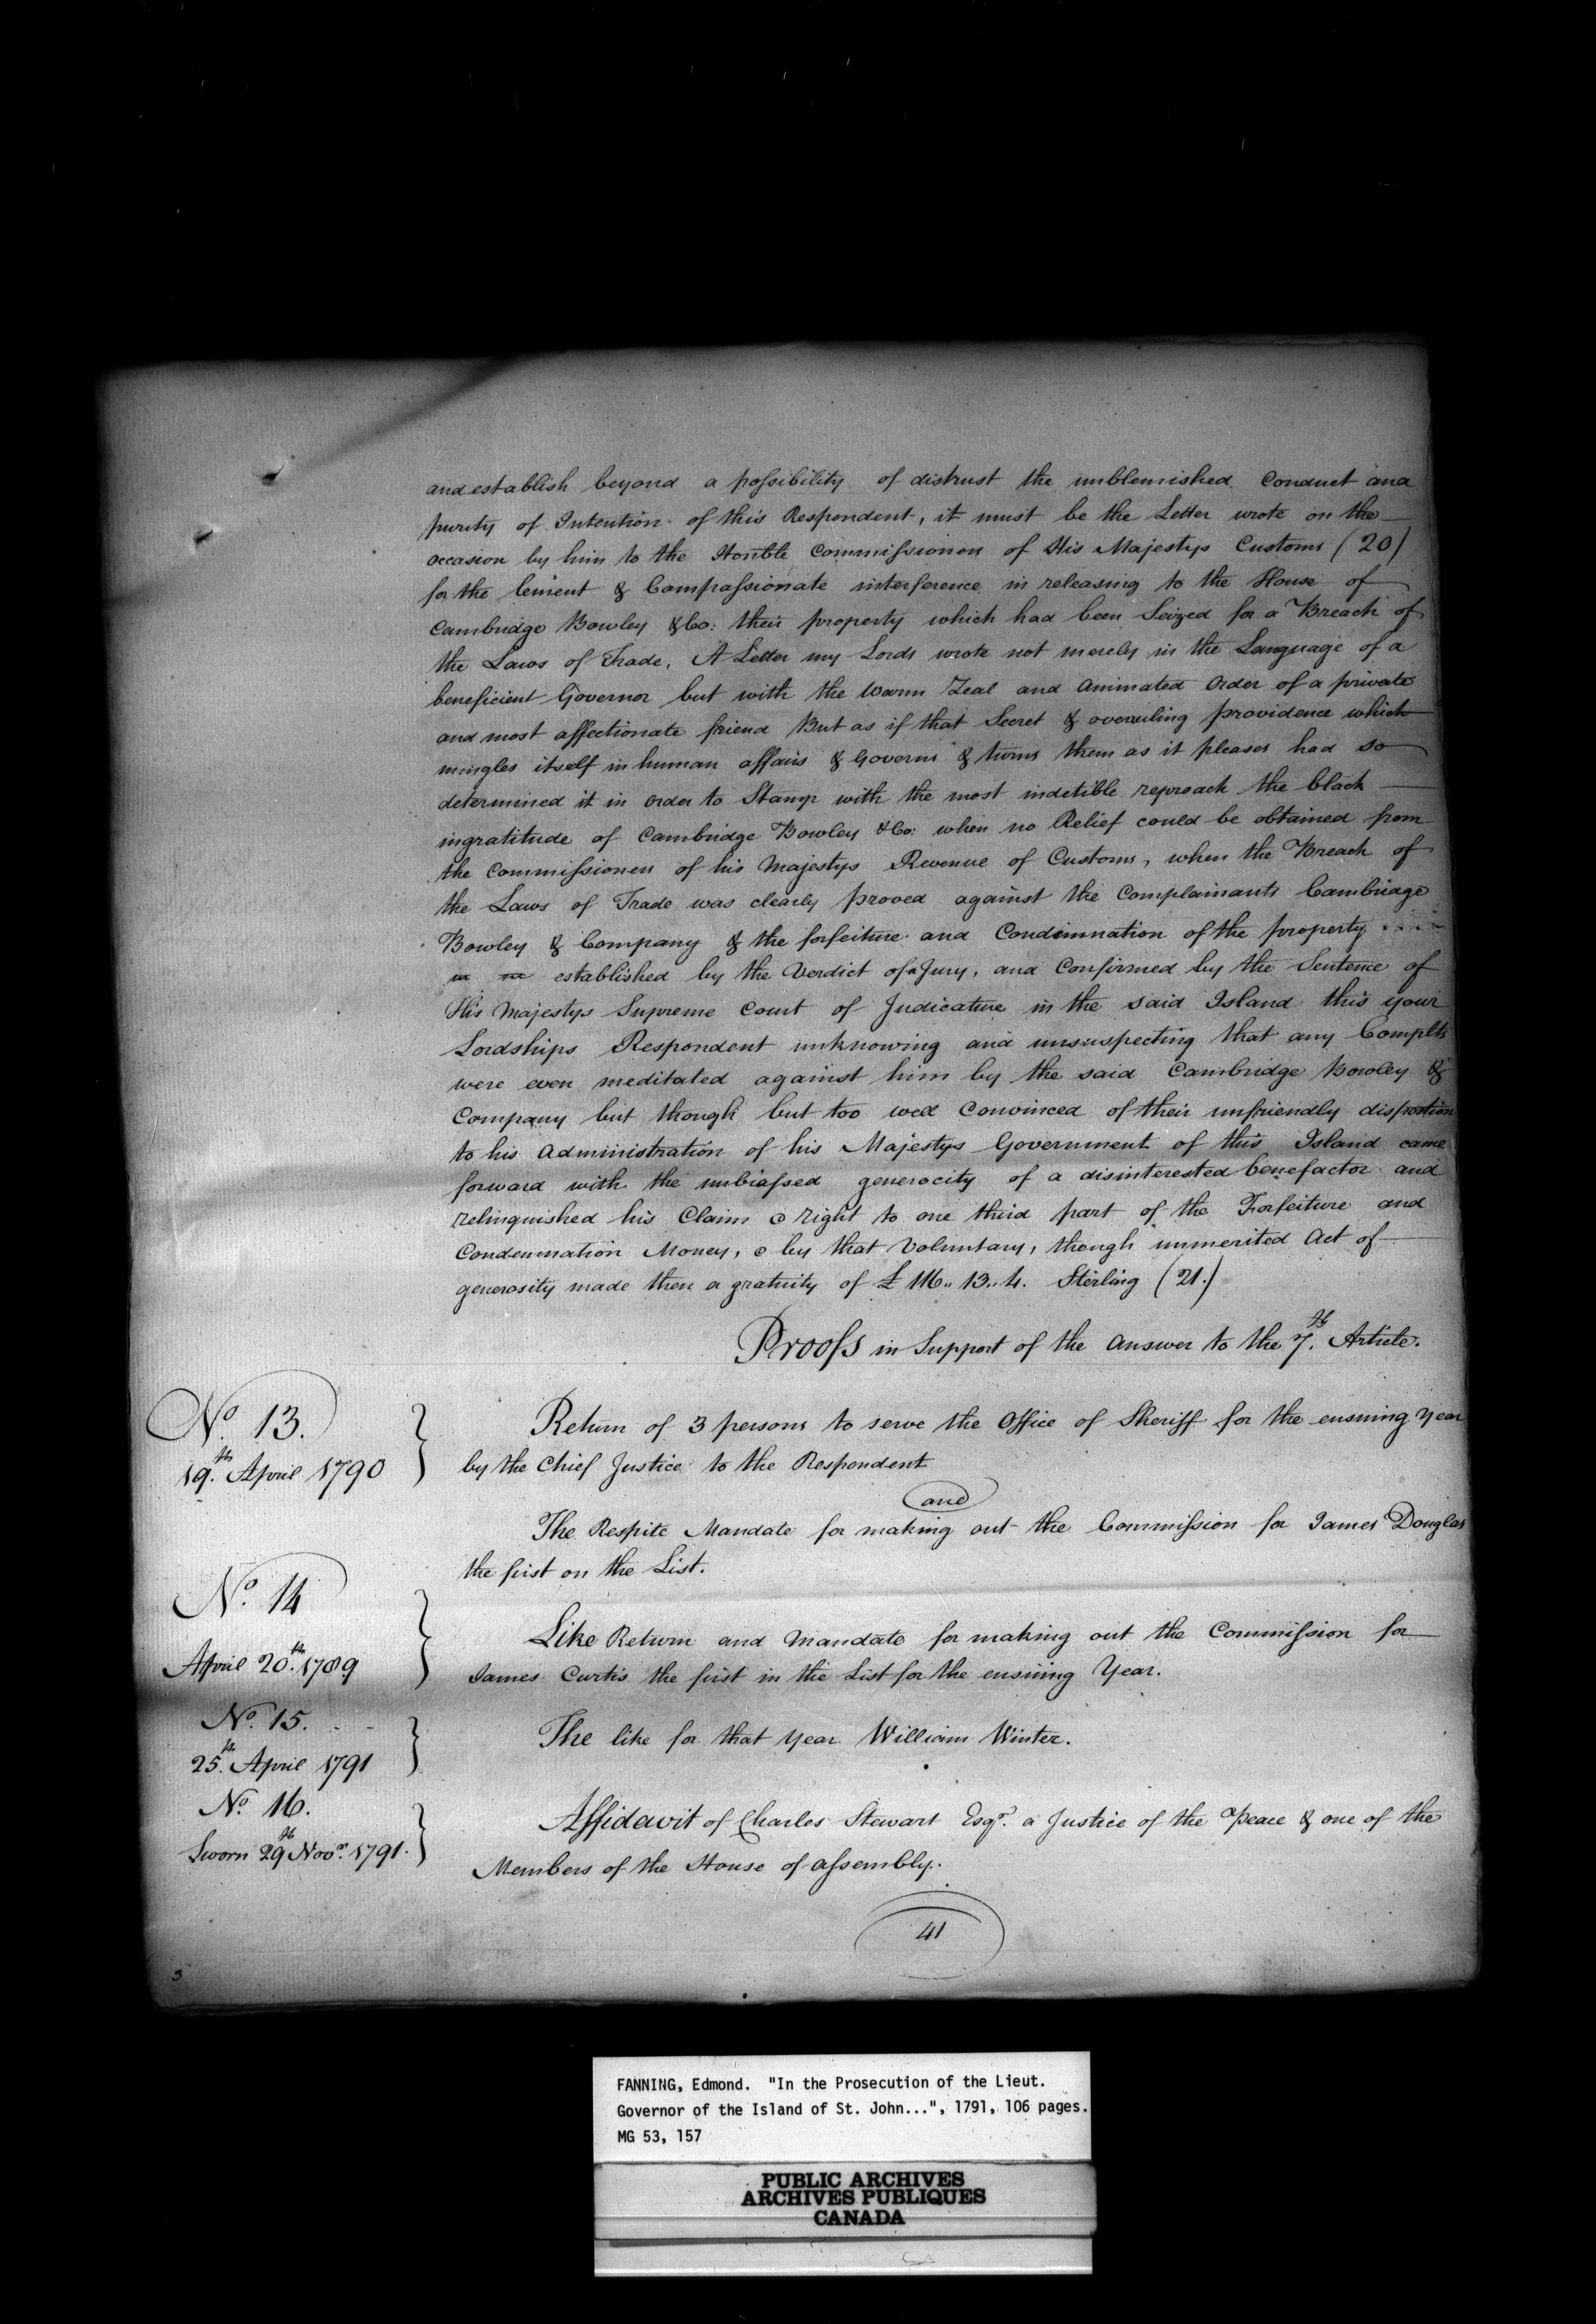 and establish beyond a possibility of distrust the unblemished Conduct and
purity of Intention of this Respondent, it must be the Letter wrote on the
occasion by him to the Honble Commissioners of His Majestys Customs (20)
for the lenient & Compassionate interference in releasing to the House of
Cambridge Bowley & Co: their property which had been Seized for a Breach of
the Laws of Trade. A Letter my Lords wrote not merely in the Language of a
beneficient Governor but with the warm Zeal and Animated Order of a private
and most affectionate friend But as if that Secret & overruling providence which
mingles itself in human affairs & Governs & turns them as it pleases had so
determined it in order to Stamp with the most indetible reproach the black
ingratitude of Cambridge Bowley & Co: when no Relief could be obtained from
the Commissioners of his Majestys Revenue of Customs, when the Breach of
the Laws of Trade was clearly proved against the Complainants Cambridge
Bowley & Company & the forfeiture and Condimnation of the property
established by the Verdict of a Jury, and Confirmed by the Sentence of
His Majestys Supreme Court of Judicature in the said Island this your
Lordships Respondent unknowing and unsuspecting that any Complts
were even meditated against him by the said Cambridge Bowley &
Company but though but too well Convinced of their unfriendly disposition
to his Administration of his Majestys Government of this Island came
forward with the unbiassed generocity of a disinterested benefactor and
relinquished his Claim & right to one third part of the Forfeiture and
Condemnation Money, & by that Voluntary, though unmerited Act of
generosity made them a gratuity of £ 116.. 13.. 4. Sterling (21.)
Proofs in Support of the Answer to the 7th. Article.
No. 13.
19th. April 1790
Return of 3 persons to serve the Office of Sheriff for the ensuing Year
by the Chief Justice to the Respondent
and
The Respite Mandate for making out the Commission for James Douglas
the first on the List.
No. 14
April 20th. 1789
Like Return and Mandate for making out the Commission for
James Curtis the first in the List for the ensuing Year.
No. 15.
25th. April 1791
The like for that Year William Winter.
No. 16.
Sworn 29th Novr. 1791.
Affidavit of Charles Stewart Esqr. a Justice of the Peace & one of the
Members of the House of Assembly.
41
3
FANNING, Edmond. "In the Prosecution of the Lieut.
Governor of the Island of St. John...", 1791, 106 pages.
MG 53, 157
PUBLIC ARCHIVES
ARCHIVES PUBLIQUES
CANADA